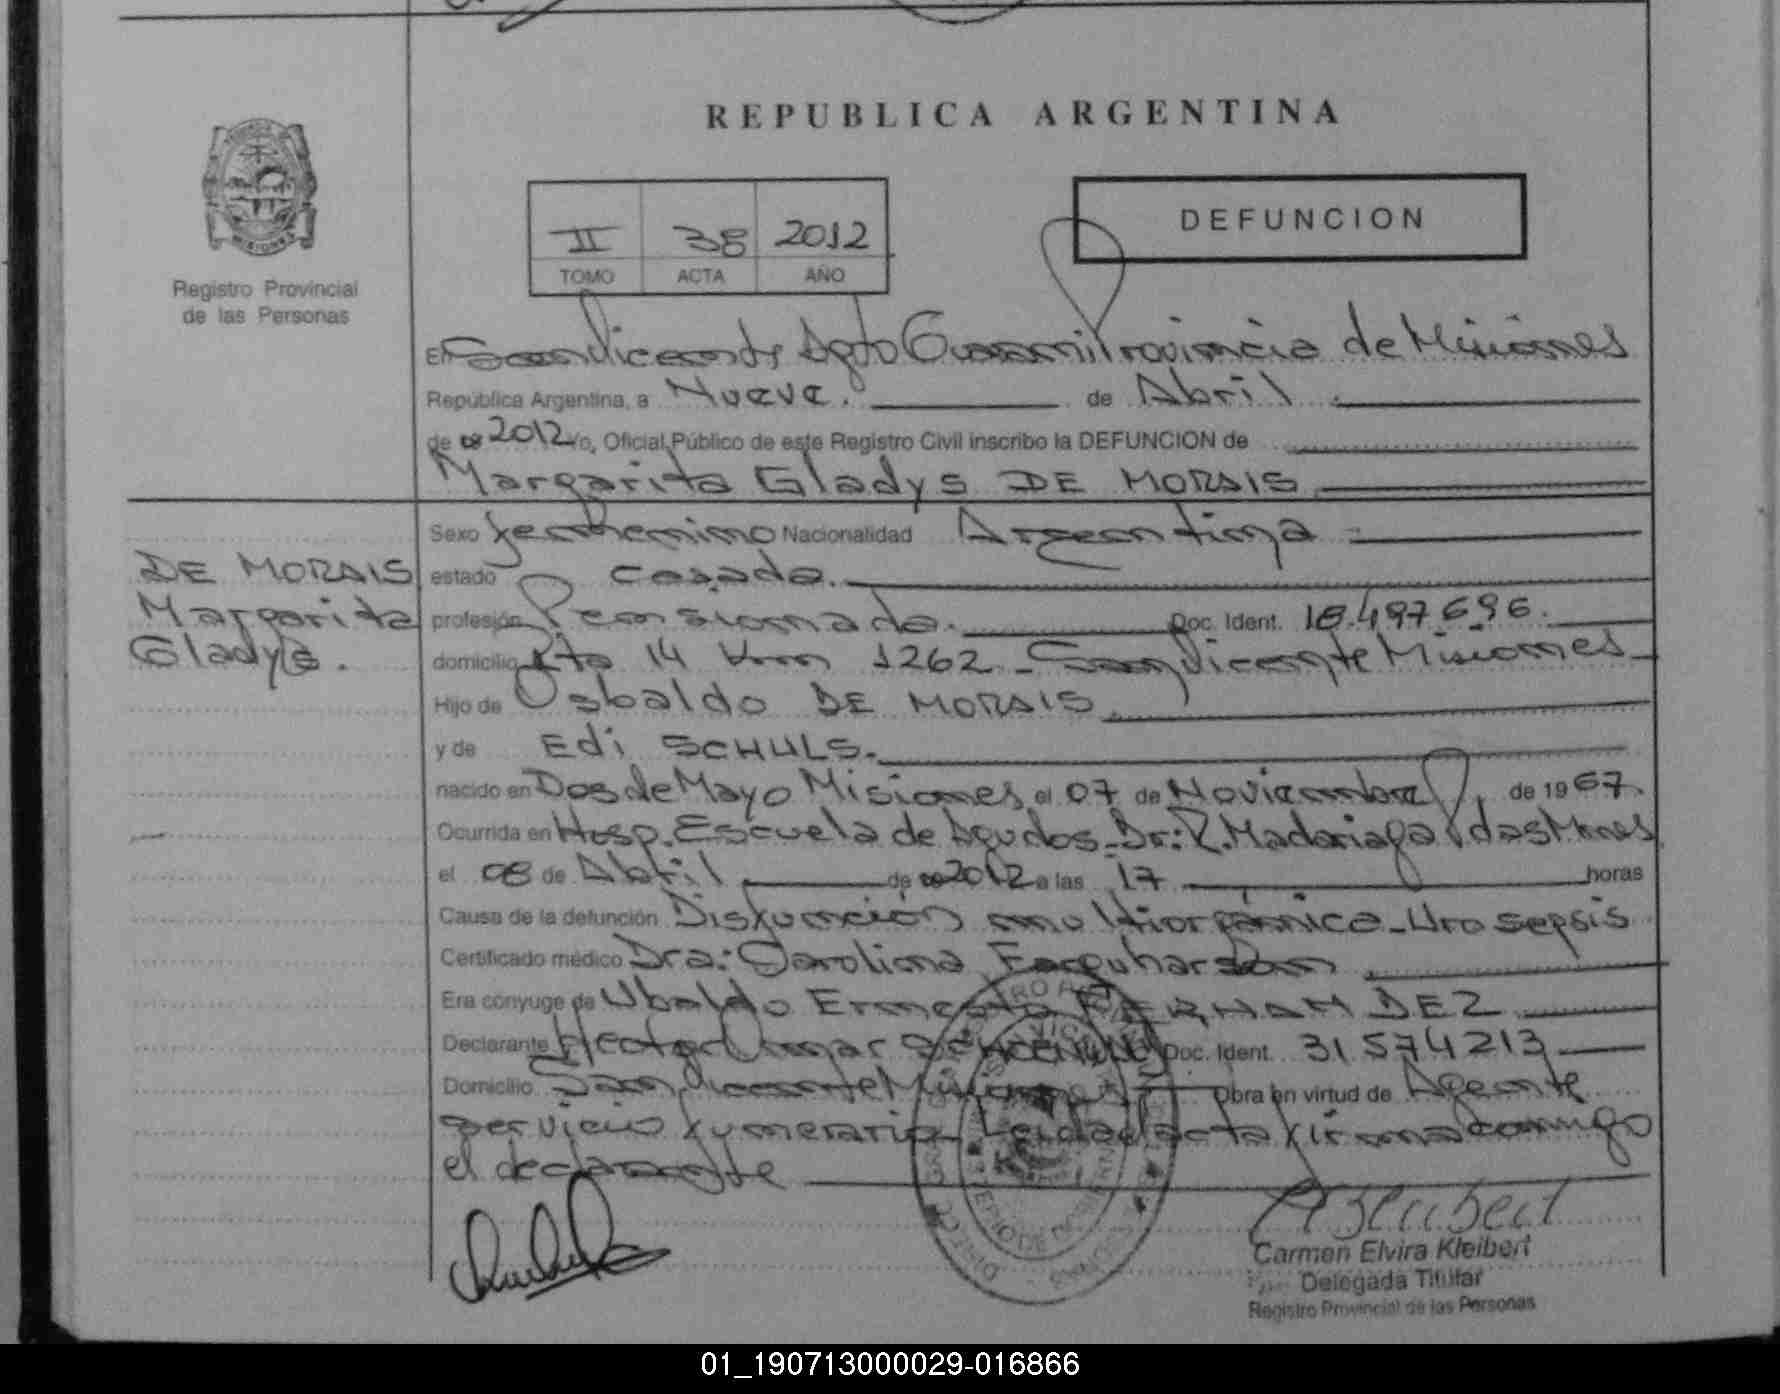 REPUBLICA ARGENTINA
MISIONES
Registro Provincial
de las Personas
II 38 2012
TOMO ACTA AÑO
DEFUNCION
En San Vicente Dpto Guarani Provincia de Misiones
República Argentina, a Nueve. de Abril
de 2012 yo, Oficial Público de este Registro Civil inscribo la DEFUNCION de
Margarita Gladys DE MORAIS
DE MORAIS
Margarita
Gladys.
Sexo femenino Nacionalidad Argentina
estado casada.
profesión Pensionada. Doc. Ident. 18.497.696.
domicilio Rta 14 Km 1262 - San Vicente Misiones
Hijo de Osbaldo DE MORAIS
y de Edi SCHULS.
nacido en Dos de Mayo Misiones el 07 de Noviembre de 1967
Ocurrida en Hosp. Escuela de Agudos - Dr: R. Madariaga
el 08 de Abril de 2012 a las 17 horas
Causa de la defunción Disfunción multiorgánica - Uro sepsis
Certificado médico Dra: Carolina Farquharson
Era cónyuge de Ubaldo Ernesto FERNANDEZ
Declarante Hector Omar Doc. Ident. 31574213
Domicilio San Vicente Misiones Obra en virtud de Agente
servicio fumerario Leida el acta firma conmigo
el declarante
Carmen Elvira Kleibert
Delegada Titular
Registro Provincial de las Personas
01_190713000029-016866